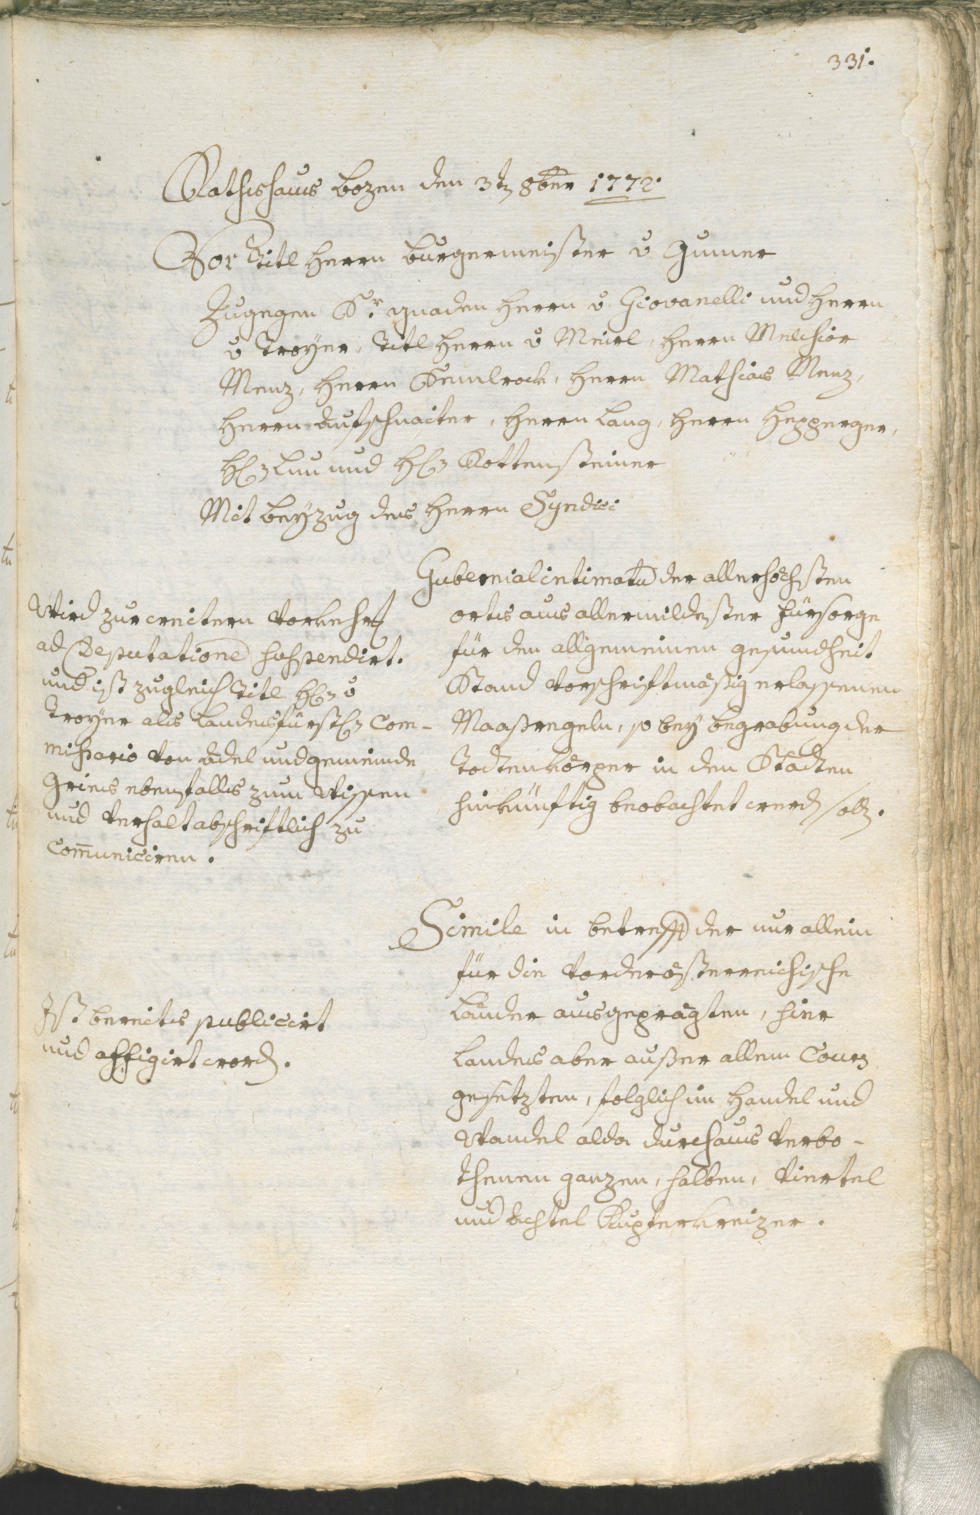 331.
Rathshaus Bozen den 3t 8ber 1772.
Vor Titl Herrn Burgermeister v Gumer
Zugegen Sr. gnaden Herrn v Giovanelli und Herrn
v Troyer, Titl Herrn v Meirl, Herrn Melchior
Menz, Herrn Mathias Menz,
Herrn Aufschnaiter, Herrn Lang, Herrn Hepperger,
und Rottensteiner
Mit beyzug des Herrn Syndici
Gubernial intimatū der allerhöchsten
orts aus allermildester Fürsorge
für den allgemeinen gesundheit
Stand vorschriftmäßig erlassenen
Maaßregeln, so bey begrabung der
Todtenkörper in den Städten
hinkünftig beobachtet werdn solln.
Wird zur weitern Vorkehr
ad Deputationē suspendirt.
und ist zugleich Titl v
Troyer als Landesfürstl Com-
missario von Adel und gemeinde
Gries ebenfalls zum Wissen
und Verhalt abschriftlich zu
Com̄unicirn.
Simile in betreff der nur allein
für die Vorderösterreichische
Länder ausgeprägten, hier
Landes aber außer allem Cours
gesetzten, folglich im Handel und
Wandel alda durchaus Verbo-
thenen ganzen, halben, Viertel
und Achtel Kupferkreizer.
Ist bereits publicirt
und affigirt wordn.